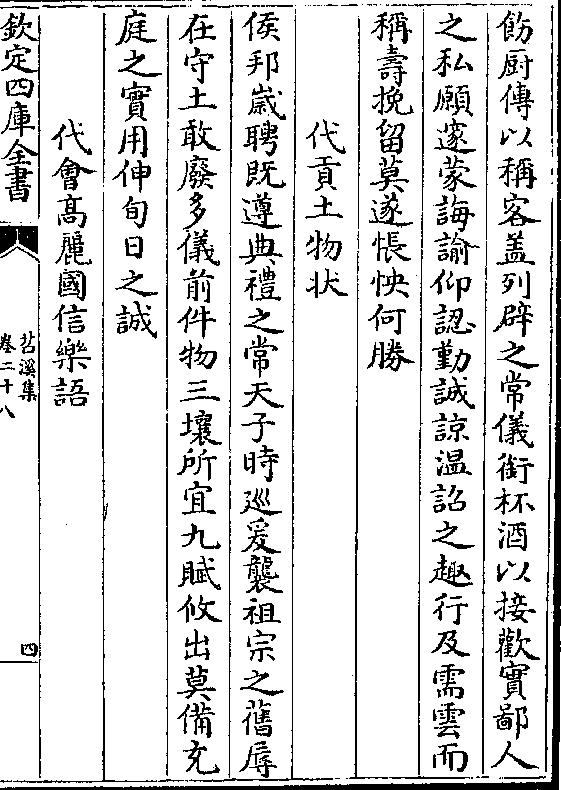 飭厨傳以稱客盖列辟之常儀銜杯酒以接歡實鄙人
之私願遽蒙誨諭仰認勤誠諒温詔之趣行及需雲而
稱壽挽留莫遂悵怏何勝
代貢土物状
侯邦嵗聘既遵典禮之常天子時廵爰襲祖宗之舊辱
在守土敢廢多儀前件物三壤所宜九賦攸出莫備充
庭之實用伸旬日之誠
代㑹髙麗國信樂語
欽定四庫全書
苕溪集
卷二十八
四